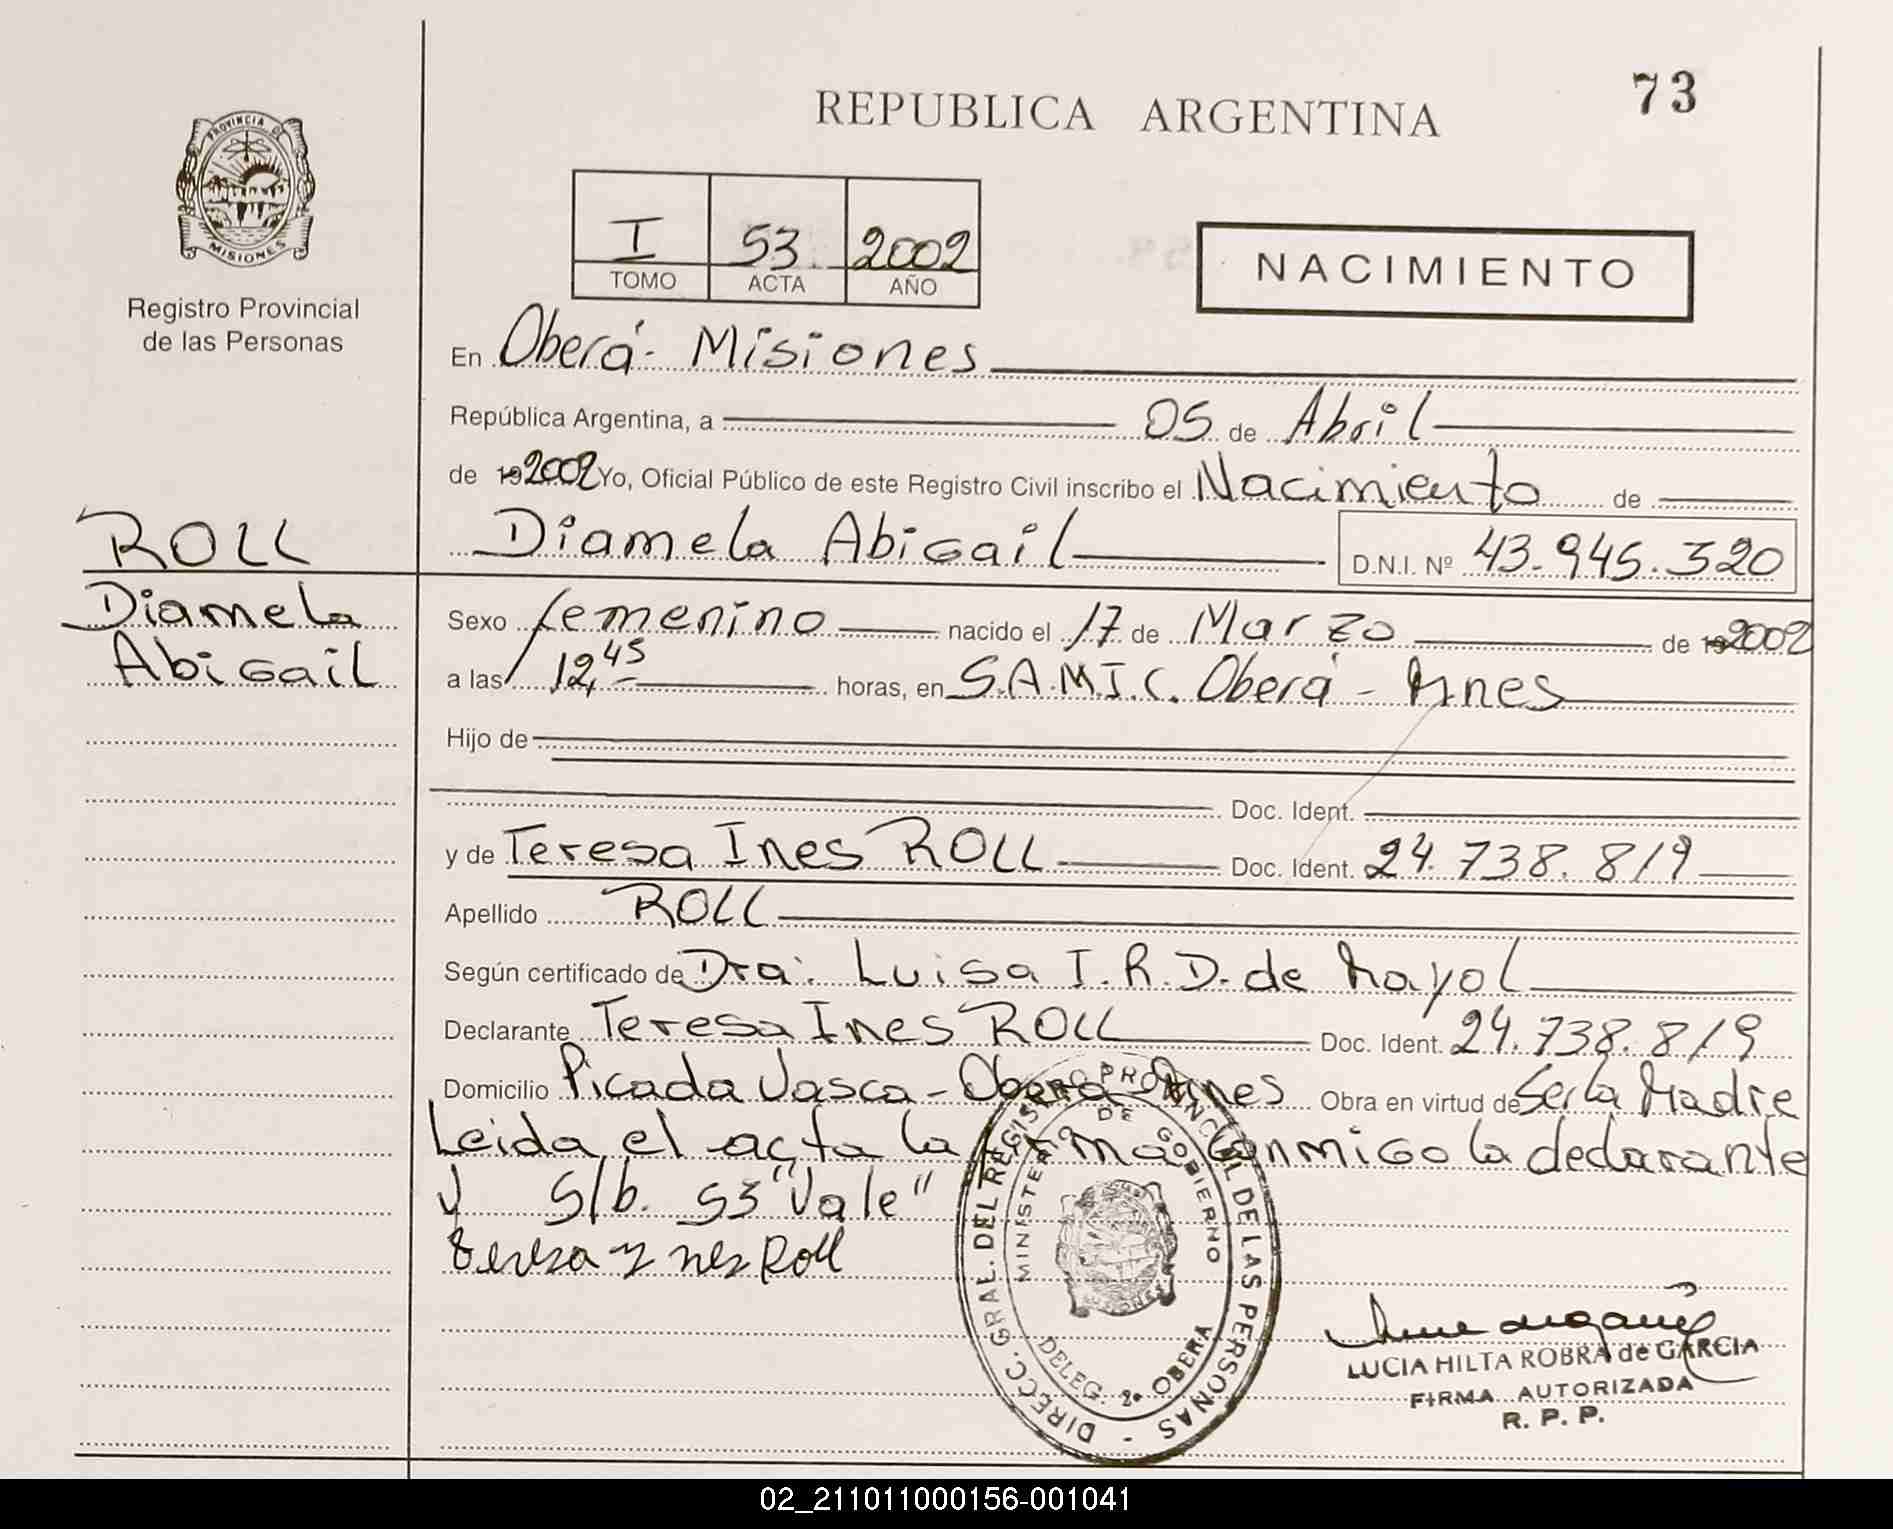 73
REPUBLICA ARGENTINA
PROVINCIA DE
MISIONES
Registro Provincial
de las Personas
I 53 2002
TOMO ACTA AÑO
NACIMIENTO
En Oberá - Misiones
República Argentina, a 05 de Abril
de 19 2002 Yo, Oficial Público de este Registro Civil inscribo el Nacimiento de
ROLL
Diamela
Abigail
Diamela Abigail D.N.I. Nº 43.945.320
Sexo femenino nacido el 17 de Marzo de 19 2002
a las 12,45 horas, en S.A.M.I.C. Oberá - Mnes
Hijo de
Doc. Ident.
y de Teresa Ines ROLL Doc. Ident. 24.738.819
Apellido ROLL
Según certificado de Dra: Luisa I. R. D. de Mayol
Declarante Teresa Ines ROLL Doc. Ident. 24.738.819
Domicilio Picada Vasca - Oberá - Mnes Obra en virtud de Ser la Madre
Leida el acta la firma conmigo la declarante
y S/b. 53 "Vale"
Teresa Ynes Roll
DIRECC. GRAL. DEL REGISTRO PROVINCIAL DE LAS PERSONAS -
MINISTERIO DE GOBIERNO
DELEG. 2ª OBERA
LUCIA HILTA ROBRA de GARCIA
FIRMA AUTORIZADA
R. P. P.
02_211011000156-001041